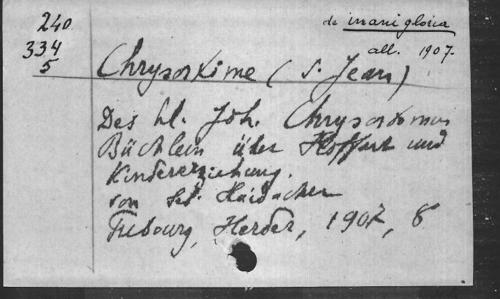 240 de inani gloria
334 all. 1907.
5
Chrysostime (S. Jean)
Des hl. Joh. Chrysostomus
Büchlein über Hoffart und
Kindererziehung.
von Seb. Haidacher
Fribourg, Herder, 1907, 8°